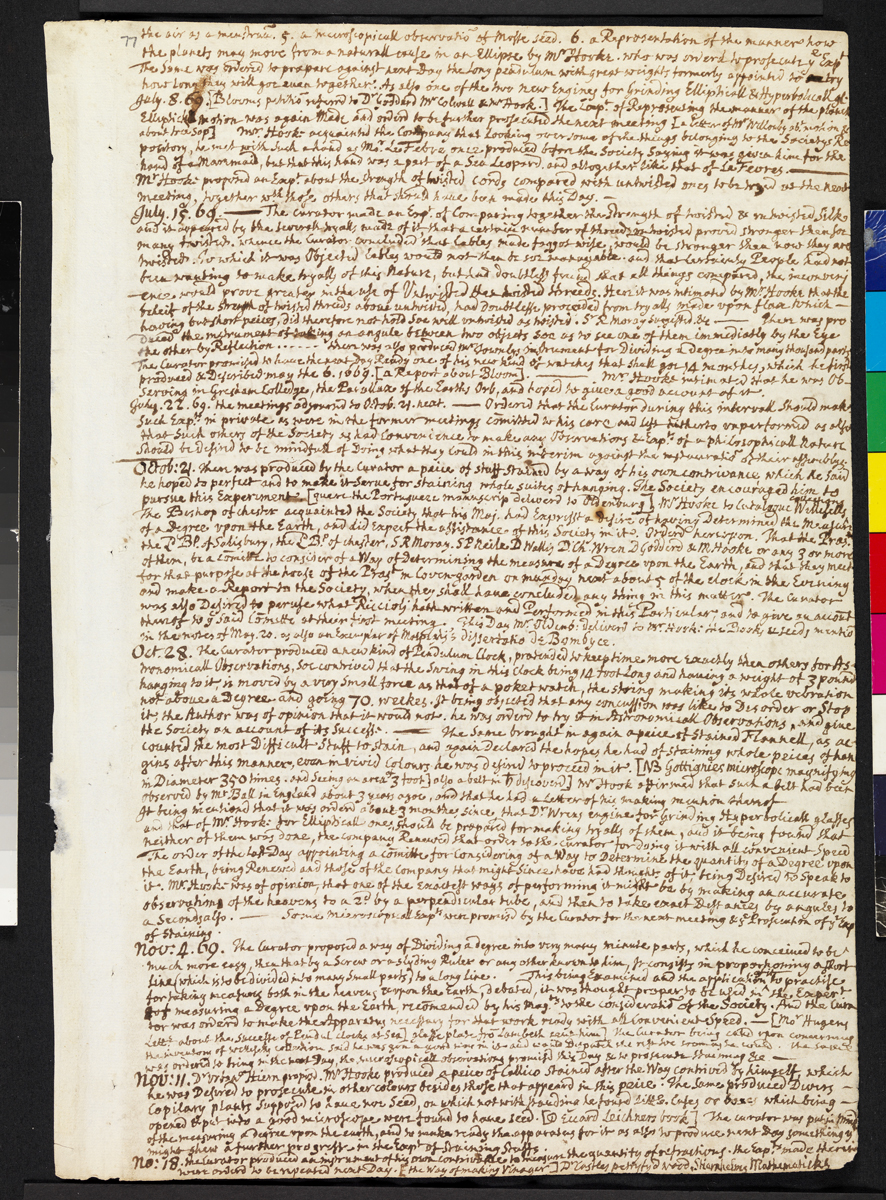 77 the air as a menstruū. 5. a microscopicall observatiō of Mosse seed. 6. a Representation of the manner how
the planets may move from a naturall cause in an Ellipse by Mr Hooke. who was orderd to prosecute ye Expt
The Same was ordered to prepare against next Day the Long pendulum with great weights formerly appointed to try
how long they will goe even together. As also one of the two new Engines for Grinding Ellipticall & Hyperbolicall gl
July. 8. 69. [Blooms petitiō referd to Dr Goddard Mr Colwall & mr Hook.] The Expt of Representing the manner of the planets
Elliptick motion was again Made and orderd to be further prosecuted the next meeting [a Letter of Mr Willoughby abt
about tree Sap] Mr Hook acquainted the Company that Looking over some of the things belonging to the Societys Re
pository, he met with Such a hand as Mr Le Febure once produced before the Society Saying it was given him for the
hand of a Maremaid, but that this hand was a part of a Sea Leopard, and altogether like that of Le Fevres. —
Mr Hooke propond an Expt about the Strength of twisted Cords compared with untwisted ones to be tryd at the next
meeting, together wth those others that should have been made this Day. —
July. 15. 69. — The Curator made an Expt of Comparing together the Strength of twisted & untwisted Silk
and it appeared by the severall tryalls made of it that a certain number of threds untwisted proved stronger then soe
many twisted. whence the Curator concluded that Cables made faggot wise, would be stronger then now they are
twisted. To which it was Objected Cables would not then be soe manageable. and that certainly People had not
been wanting to make tryalls of this Nature, but had doubtless found that all things compared, the inconveni
ence would prove greater in the use of Untwisted then twisted threeds. Here it was intimated by Mr Hooke that the
beleif of the Strength of twisted threds above untwisted, had Doubtlesse proceeded from tryalls made upon flax which
having but short peices, did therefore not hold soe well untwisted as twisted. Sr R. Moray Suggested &c — There was pro
duced the instrument of taking an angle between two objects soe as to see one of them immediatly by the Eye
the other by Reflection ...... There was also produced Mr Townlys instrument for Dividing a degree into many thousand parts
The Curator promised to have the next Day Ready one of his new kind of watches that shall goe 14 months, which he first
produced & Described may the 6. 1669. [a Report about Bloom]. Mr Hooke intimated that he was Ob
Serving in Gresham Colledge, the Parallax of the Earths Orb, and hoped to give a good account of it.
July. 22. 69. the meetings adjournd to Octob. 21. next. — Ordered that the Curator during this intervall Should make
Such Expts in private as were in the former meetings comitted to his care and Left hitherto unperformed as also
that Such others of the Society as had Convenience to make any Observations & Expts of a philosophicall Nature
should be desird to be mindfull of Doing what they could in this interim against the restauratiō of their assemblys
Octob: 21. There was produced by the Curator a peice of stuff Stained by a way of his own contrivance, which he said
he hoped to perfect and to make it serve for staining whole suites of hanging. The Society encouraged him to
pursue this Experiment. [quere the Portugueze manuscrip deliverd to Oldenburg] Mr Hooke to Catalogue Willisills collection
The Bishop of Chester acquainted the Society that his Maj. had Exprest a desire of having Determined the Measure
of a Degree upon the Earth, and did Expect the assistance of this Society in it. Orderd hereupon. That the Presdt
the Ld Bp of Salisbury, the L Bp of Chester, S R Moray. S P Neile. D Wallis D Ch. Wren D Goddard & M Hooke or any 3 or more
of them, be a Comitte to consider of a Way of Determining the measure of a Degree upon the Earth, and that they meet
for that purpose at the house of the Presdt in Coven garden on munday next about 5 of the clock in the Evening
and make a Report to the Society, when they shall have concluded any thing in this matter. The Curator
was also Desired to peruse what Riccioli hath written and Performed in this Particular, and to give an account
thereof to ye said Comitte at their first meeting. This Day Mr Oldenb: deliverd to Mr Hook. the Books & seeds mentio
in the notes of May. 20. as also an Exemplar of Malpighi's Dissertatio de Bombyce.
Oct. 28. The Curator produced a new kind of Pendulum Clock, pretended to keep time more Exactly then others for As
tronomicall Observations, soe contrived that the Swing in this clock being 14 foot Long and having a weight of 3 pound
hanging to it, is moved by a very Small force as that of a poket watch, the string making its whole vibration
not above a Degree. and going 70. weekes. It being objected that any concussion was like to Disorder or Stop
it, the Author was of opinion that it would not. he was orderd to try it in Astronomicall Observations, and give
the Society an account of its Success. — The Same brought in again a peice of Stained Flannell, as ac
counted the most Difficult Stuff to stain, and again Declared the hopes he had of staining whole peices of han
gins after this manner, even in vivid Colours. he was desird to proceed in it. [NB Gottignies microscope magnifying
in Diameter 350 times. and seeing an area 3 foot] also a belt in ♄ discoverd] Mr Hook affirmed that such a belt had been
observed by Mr Ball in England about 3 years agoe, and that he had a Letter of his making mention thereof
It being mentiond that it was orderd about 3 months since, that Dr Wrens engine for grinding Hyperbolicall glasses
and that of Mr Hooks for Ellipticall ones, should be prepared for making tryalls of them, and it being found that
neither of them was done, the company Renewed that order to the Curator for doing it with all convenient Speed
The order of the Last Day appointing a Comitte for Considering of a Way to Determine the quantity of a Degree upon
the Earth, being Renewed and those of the Company that might Since have had thoughts of it being Desired to Speak to
it. Mr Hooke was of opinion, that one of the Exactest ways of performing it might be by making an accurate
observation of the heavens to a 2d by a perpendicular tube, and then to take exact Distances by angules to
a Second also. — Some microscopicall Expts were promisd by the Curator for the next meeting & ye Prosecution of ye Exp
of Staining.
Nov: 4. 69. The Curator proposed a way of Dividing a degree into very many minute parts, which he conceived to be
much more easy, then that by a Screw or a slyding Ruler or any other known to him, It consists in proportioning a short
Line (which is to be divided into many small parts) to a long line. This being Examined and the application to practise
for taking measures both in the heavens & upon the Earth, debated, it was thought proper to be used in the Experimt
of measuring a Degree upon the Earth, recomended by his Magty to the consideratiō of the Society. And the Cura
tor was orderd to make the Apparatus necessary for that work ready with all Convenient Speed. — [Mor Hugens
Lettr about the Successe of Pendul clocks at Sea] The Curator being called upon concerning
was ordered to bring in the next Day, the microscopicall observations promisd this Day & to prosecute Staining &c —
Nov: 11. Mr Hooke produced a peice of Callico Stained after the Way Contrived by himself, which
he was Desired to prosecute in other colours besides those that appeard in this peice. The Same produced Divers
Capilary plants Supposd to have noe Seed, on which not with standing he found Little Cases or boxes which being
opened & put into a good microscope were found to have seed. [Eccard Leichners book] The Curator was put in mind
of the measuring a degree upon the earth, and to make ready the apparatus for it as also to produce next Day something yt
might shew a further progress in the Expt of Staining Stuffs.
No: 18. The Curator produced an instrument of his own contrivance to measure the quantity of refractions. the Expt made therewith
were orderd to be repeated next Day. [the Way of making Vinager] petryfyd wood, Mathematicks